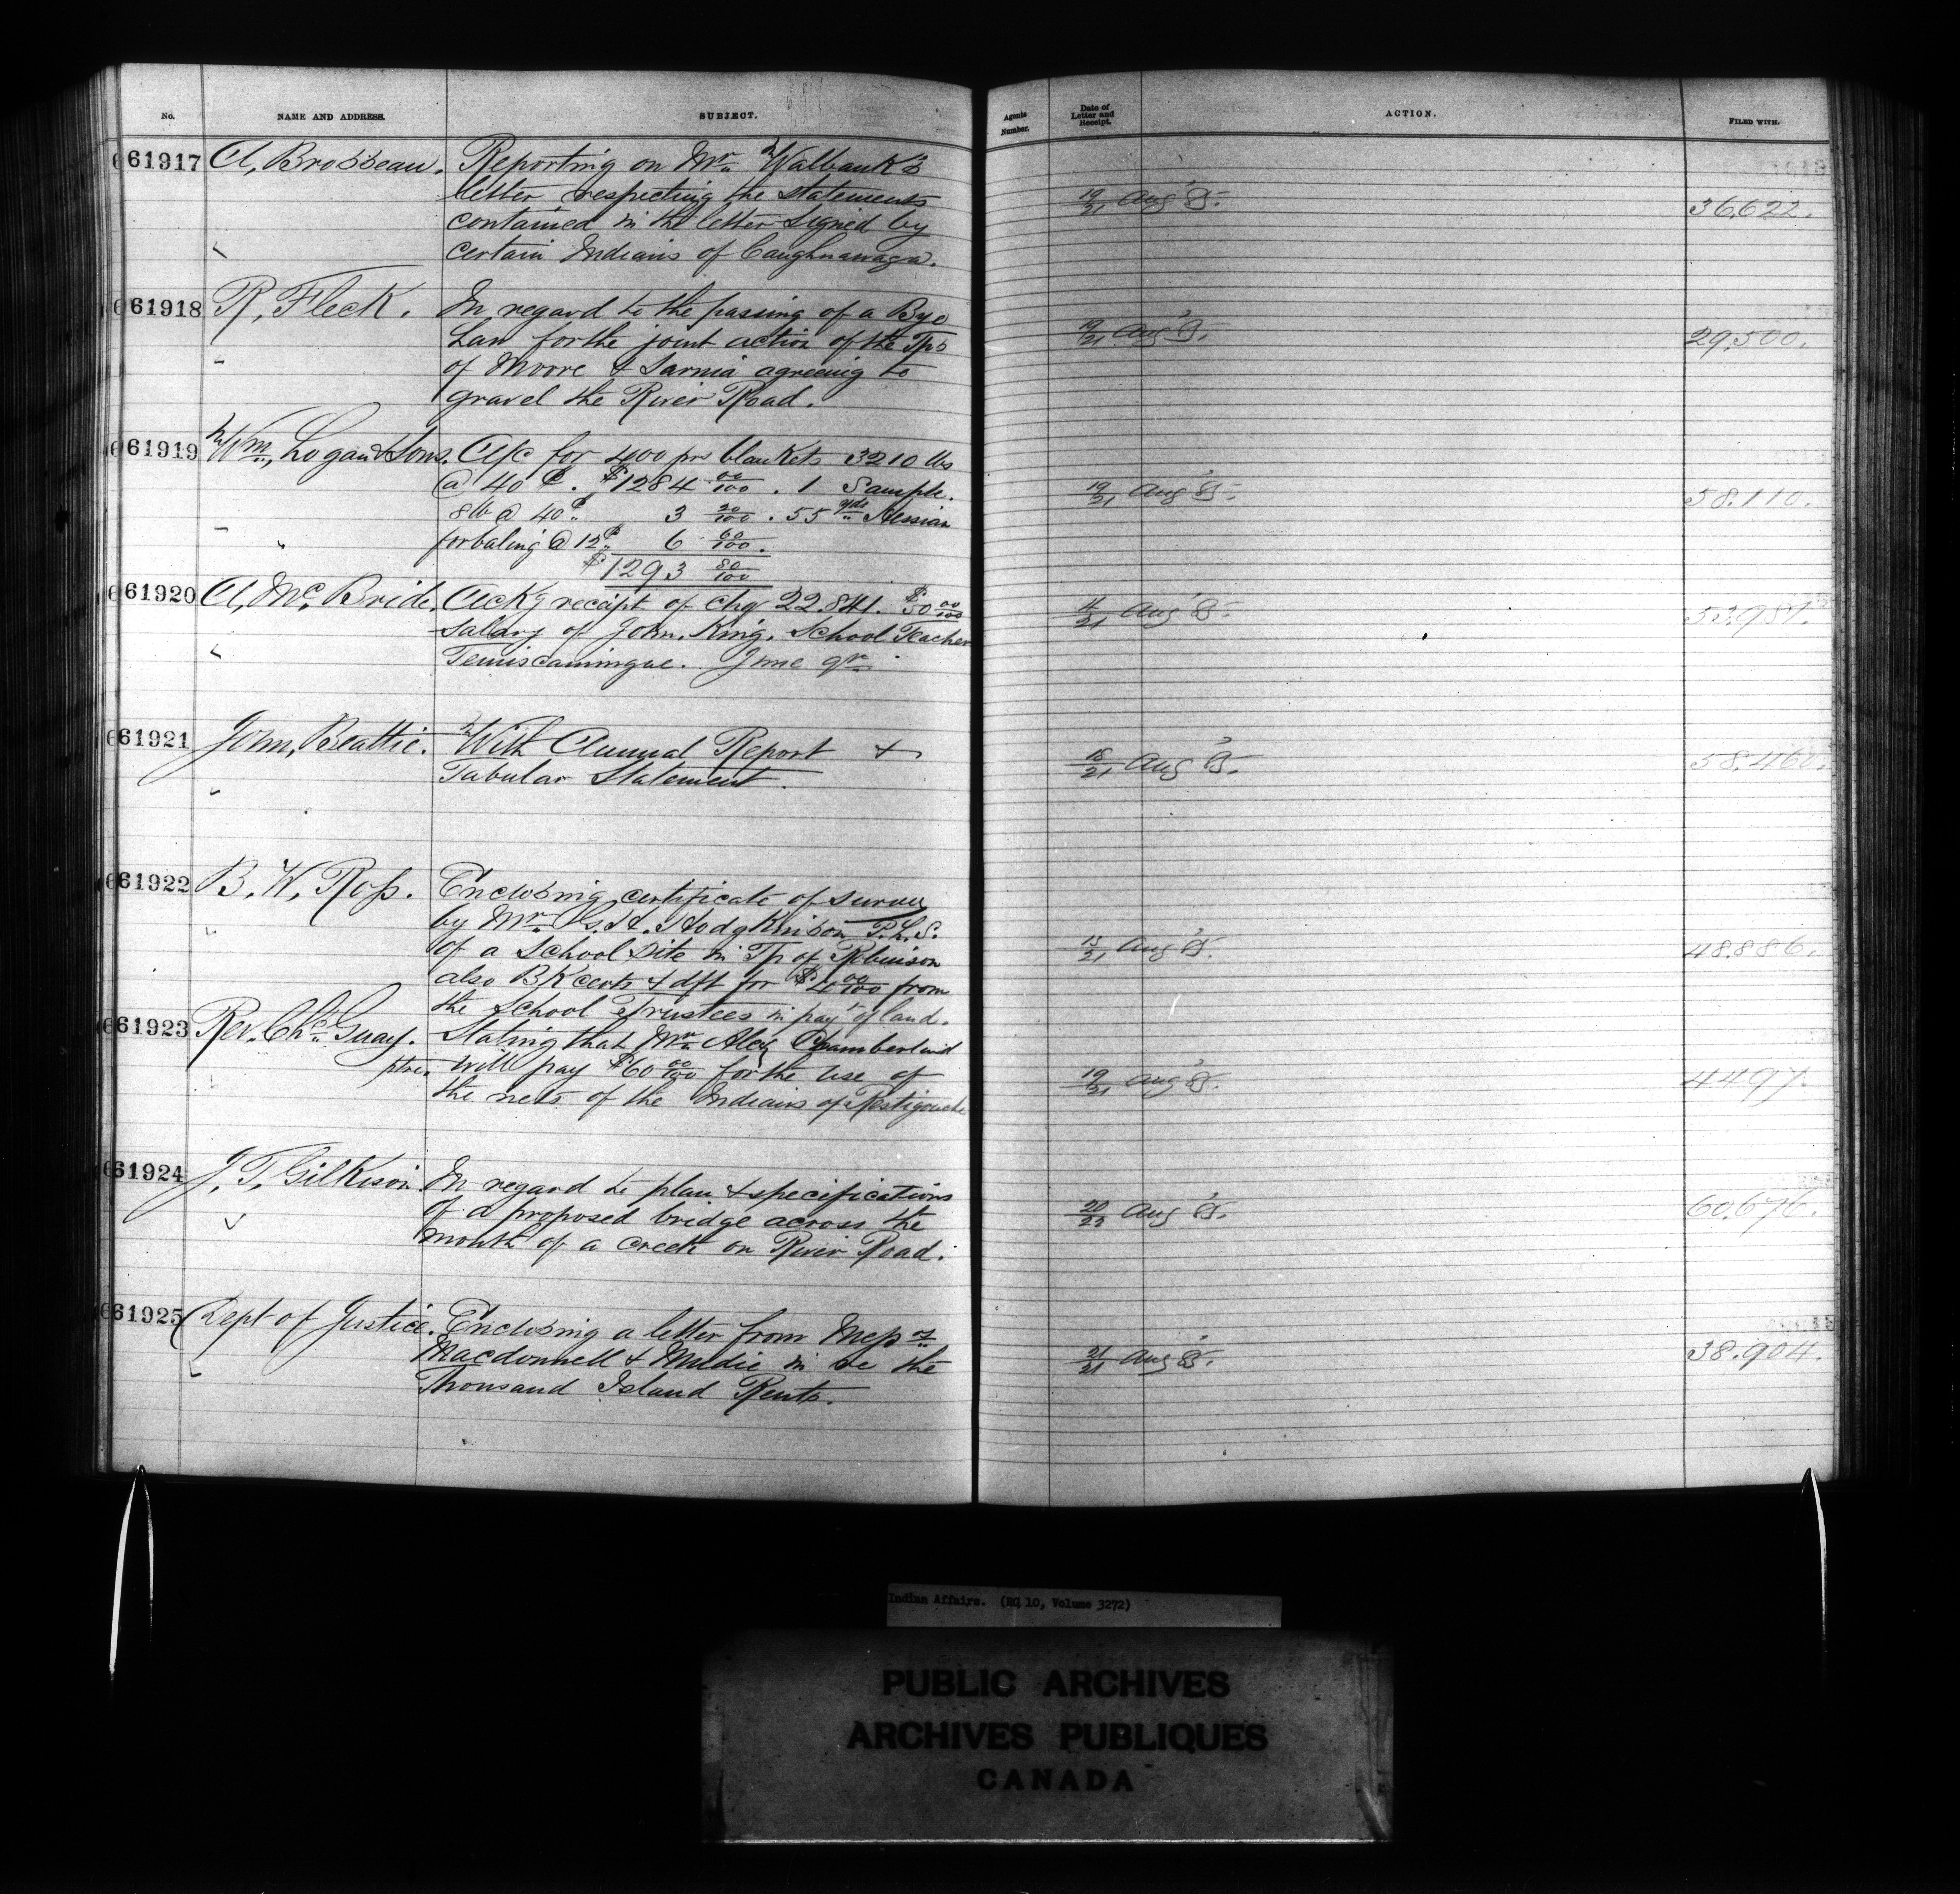 No. NAME AND ADDRESS. SUBJECT. Agents Number. Date of Letter and Receipt. ACTION. FILED WITH.
61917 A, Brosseau. Reporting on Mr. Walbank's
letter respecting the statements 19/21 Aug '85. 36,622.
contained in the letter signed by
certain Indians of Caughnawaga.
61918 R, Fleck. In regard to the passing of a Bye
Law for the joint action of the Tps 19/21 Aug '85. 29,500.
of Moore & Sarnia agreeing to
gravel the River Road.
61919 Wm, Logan & Sons. A/c for 400 prs blankets 3210 lbs
@ 40 ¢. $1284 00/100 . 1 Sample. 19/21 Aug '85. 58.110.
8 lb @ 40¢ 3 20/100 . 55 yds Hessian
for baling @ 12¢ 6 60/100.
$1293 80/100
61920 A, Mc Bride. Ackg receipt of chq 22.841. $50 00/100
Salary of John, King. School Teacher 14/21 Aug '85.
Temiscamingue. June qr.
61921 John, Beattie. With Annual Report &
Tabular Statement. 18/21 Aug '85. 58,460.
61922 B. W. Ross. Enclosing certificate of survey
by Mr. G. H. Hodgkinson P.L.S.
of a School Site in Tp of Robinson 15/21 Aug '85. 48.886.
also BK certs & dft for $4 00/100 from
the School Trustees in payt of land.
61923 Rev. Chs. Guay. Stating that Mr. Alex Chamberlain
ptre. will pay $60 00/100 for the use of 19/21 Aug '85. 4497.
the nets of the Indians of Restigouche
61924 J. T, Gilkison. In regard to plan & specifications
of a proposed bridge across the 20/23 Aug '85. 60.676.
mouth of a creek on River Road.
61925 Dept of Justice. Enclosing a letter from Messrs
Macdonnell & Mudie in re the 21/21 Aug '85. 38.904.
Thousand Island Rents.
Indian Affairs. (RG 10, Volume 3272)
PUBLIC ARCHIVES
ARCHIVES PUBLIQUES
CANADA